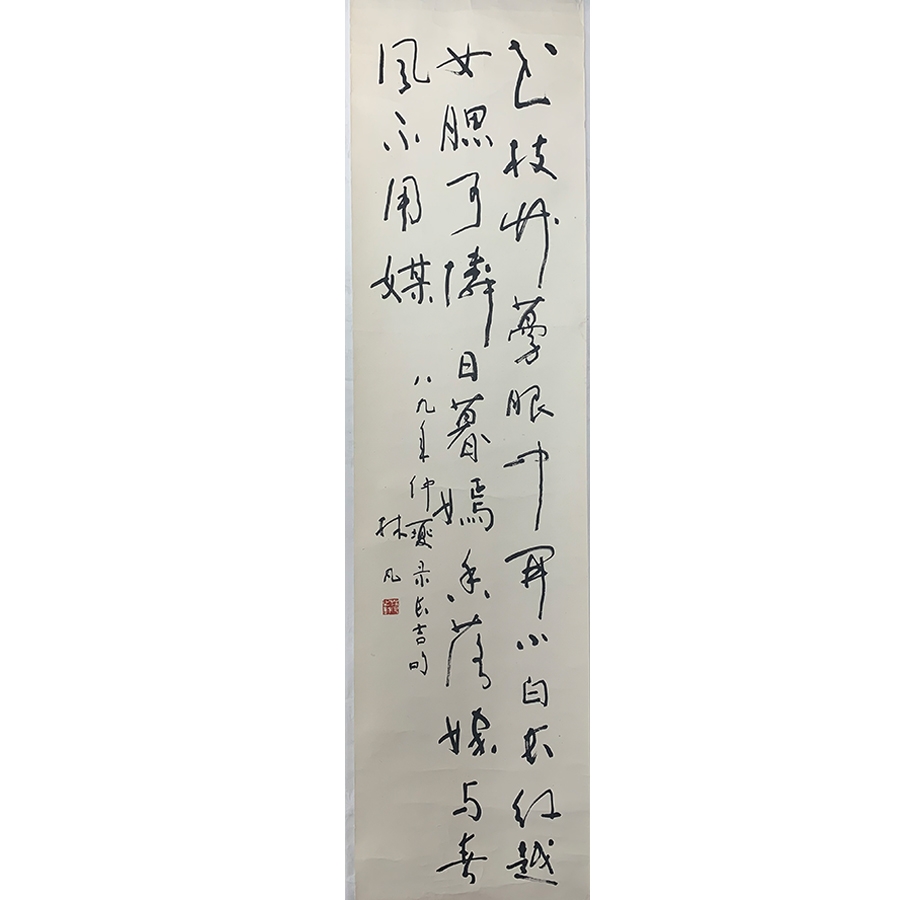 花枝草蔓眼中開小白长红越
女腮可憐日暮嫣香落嫁与春
风不用媒
八九年仲夏录长吉句
林凡